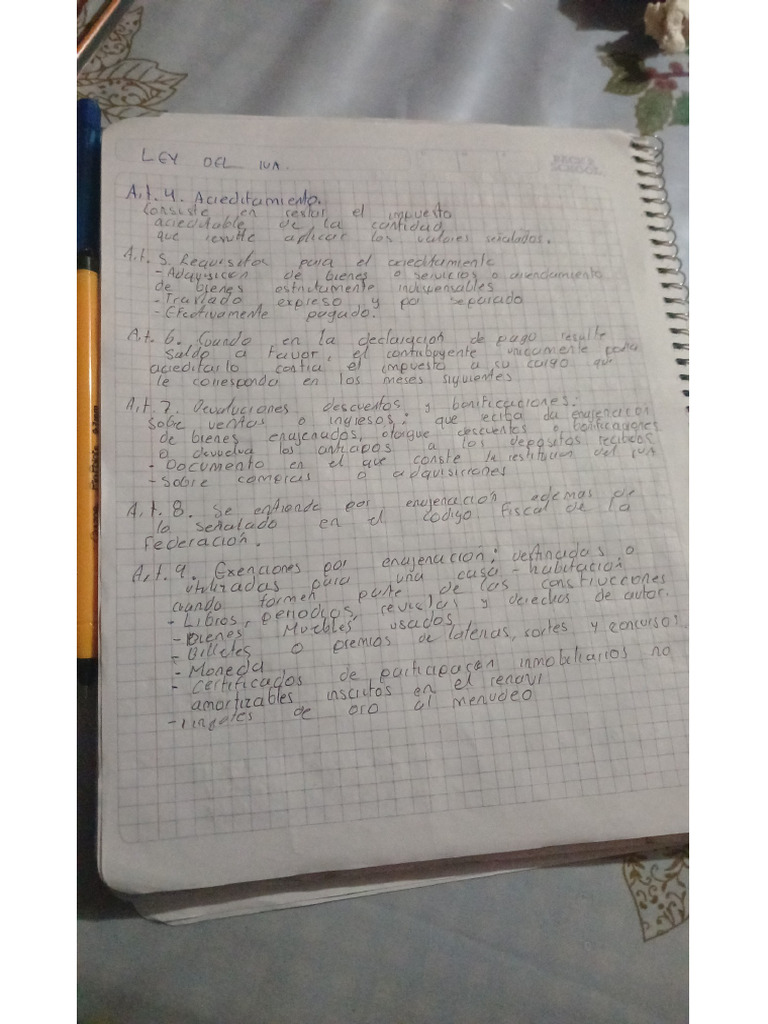 LEY DEL IVA.
BECK'S
SCHOOL
Art. 4. Acreditamiento.
Consiste en restar el impuesto
acreditable de la cantidad,
que resulte aplicar los valores señalados.
Art. 5. Requisitos para el acreditamiento
-Adquisicion de bienes o servicios o arrendamiento
de bienes estrictamente indispensables
-Traslado expreso y por separado
-Efectivamente pagado.
Art. 6. Cuando en la declaracion de pago resulte
saldo a favor, el contribuyente unicamente podra
acreditarlo contra el impuesto a su cargo que
le corresponda en los meses siguientes
Art. 7. Devoluciones descuentos y bonificaciones:
sobre ventas o ingresos: que reciba da enajenación
de bienes enajenados, otorgue descuentos o bonificaciones
o devuelva los anticipos a los depositos recibidos
- Documento en el que conste la restitución del IVA
- Sobre compras o adquisiciones
Art. 8. Se entiende por enajenacion ademas de
lo señalado en el código fiscal de la
Federación.
Art. 9. Exenciones por enajenacion: destinadas o
utilizadas para una casa - habitación
cuando formen parte de las construcciones
- Libros, periodicos, revistas y derechos de autor.
- Bienes Muebles usados
- Billetes o premios de loterias, sorteos y concursos.
- Moneda
- Certificados de participación inmobiliarios no
amortizables inscritos en el renavi
- Lingotes de oro al menudeo